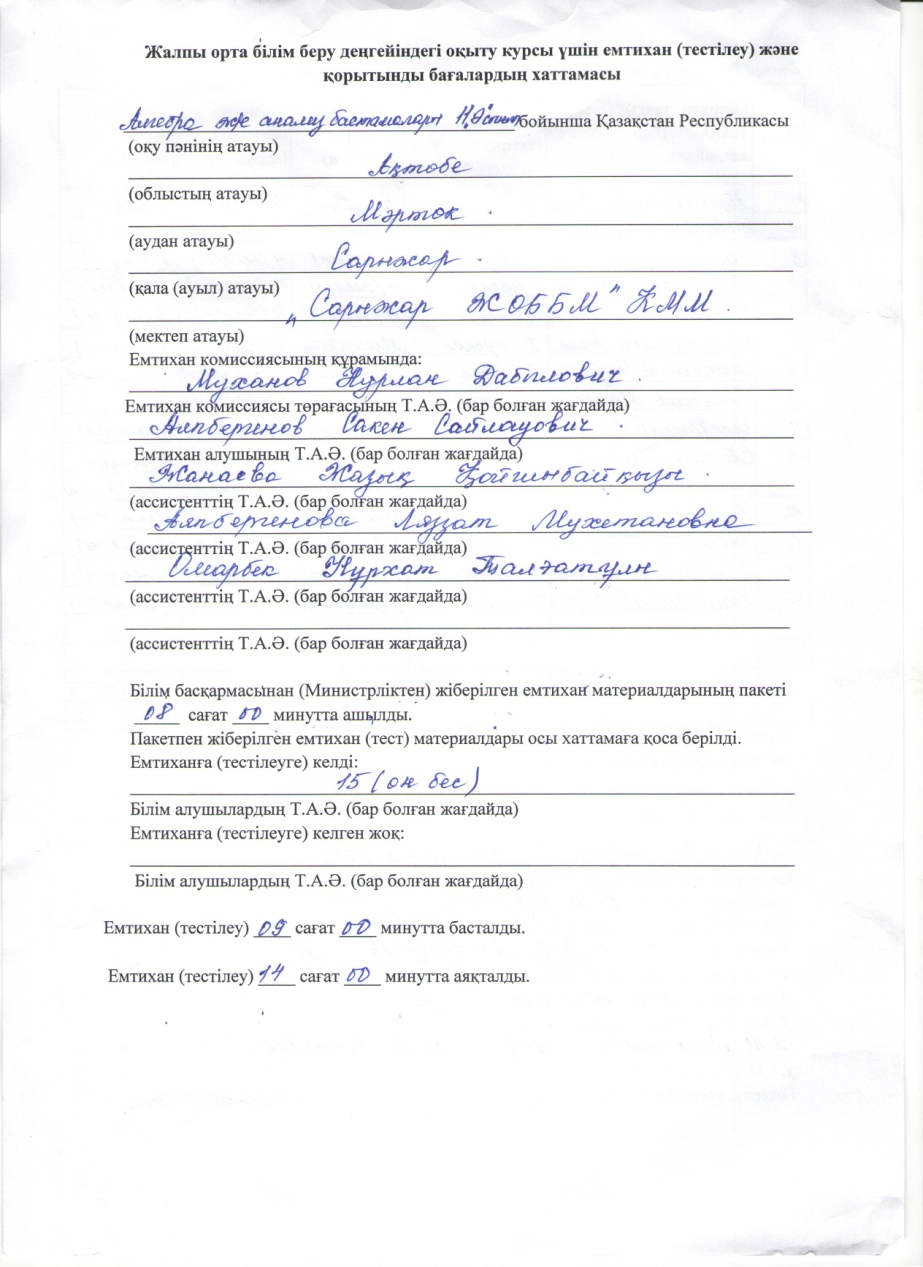 Жалпы орта білім беру деңгейіндегі оқыту курсы үшін емтихан (тестілеу) және
қорытынды бағалардың хаттамасы
Алгебра және анализ бастамалары бойынша Қазақстан Республикасы
(оқу пәнінің атауы)
Ақтөбе
(облыстың атауы)
Мәртөк
(аудан атауы)
Сарыжар
(қала (ауыл) атауы)
„Сарыжар ЖОББМ" КММ
(мектеп атауы)
Емтихан комиссиясының құрамында:
Муханов Нурлан Дабылович
Емтихан комиссиясы төрағасының Т.А.Ә. (бар болған жағдайда)
Алпбергинов Сакен Сайлауович
Емтихан алушының Т.А.Ә. (бар болған жағдайда)
Жанаева Жазық Қойшыбайқызы
(ассистенттің Т.А.Ә. (бар болған жағдайда)
Аяпбергенова Ляззат Мухетановна
(ассистенттің Т.А.Ә. (бар болған жағдайда)
Омарбек Нұрхат Талғатұлы
(ассистенттің Т.А.Ә. (бар болған жағдайда)
(ассистенттің Т.А.Ә. (бар болған жағдайда)
Білім басқармасынан (Министрліктен) жіберілген емтихан материалдарының пакеті
08 сағат 00 минутта ашылды.
Пакетпен жіберілген емтихан (тест) материалдары осы хаттамаға қоса берілді.
Емтиханға (тестілеуге) келді:
15 (он бес)
Білім алушылардың Т.А.Ә. (бар болған жағдайда)
Емтиханға (тестілеуге) келген жоқ:
Білім алушылардың Т.А.Ә. (бар болған жағдайда)
Емтихан (тестілеу) 09 сағат 00 минутта басталды.
Емтихан (тестілеу) 14 сағат 00 минутта аяқталды.